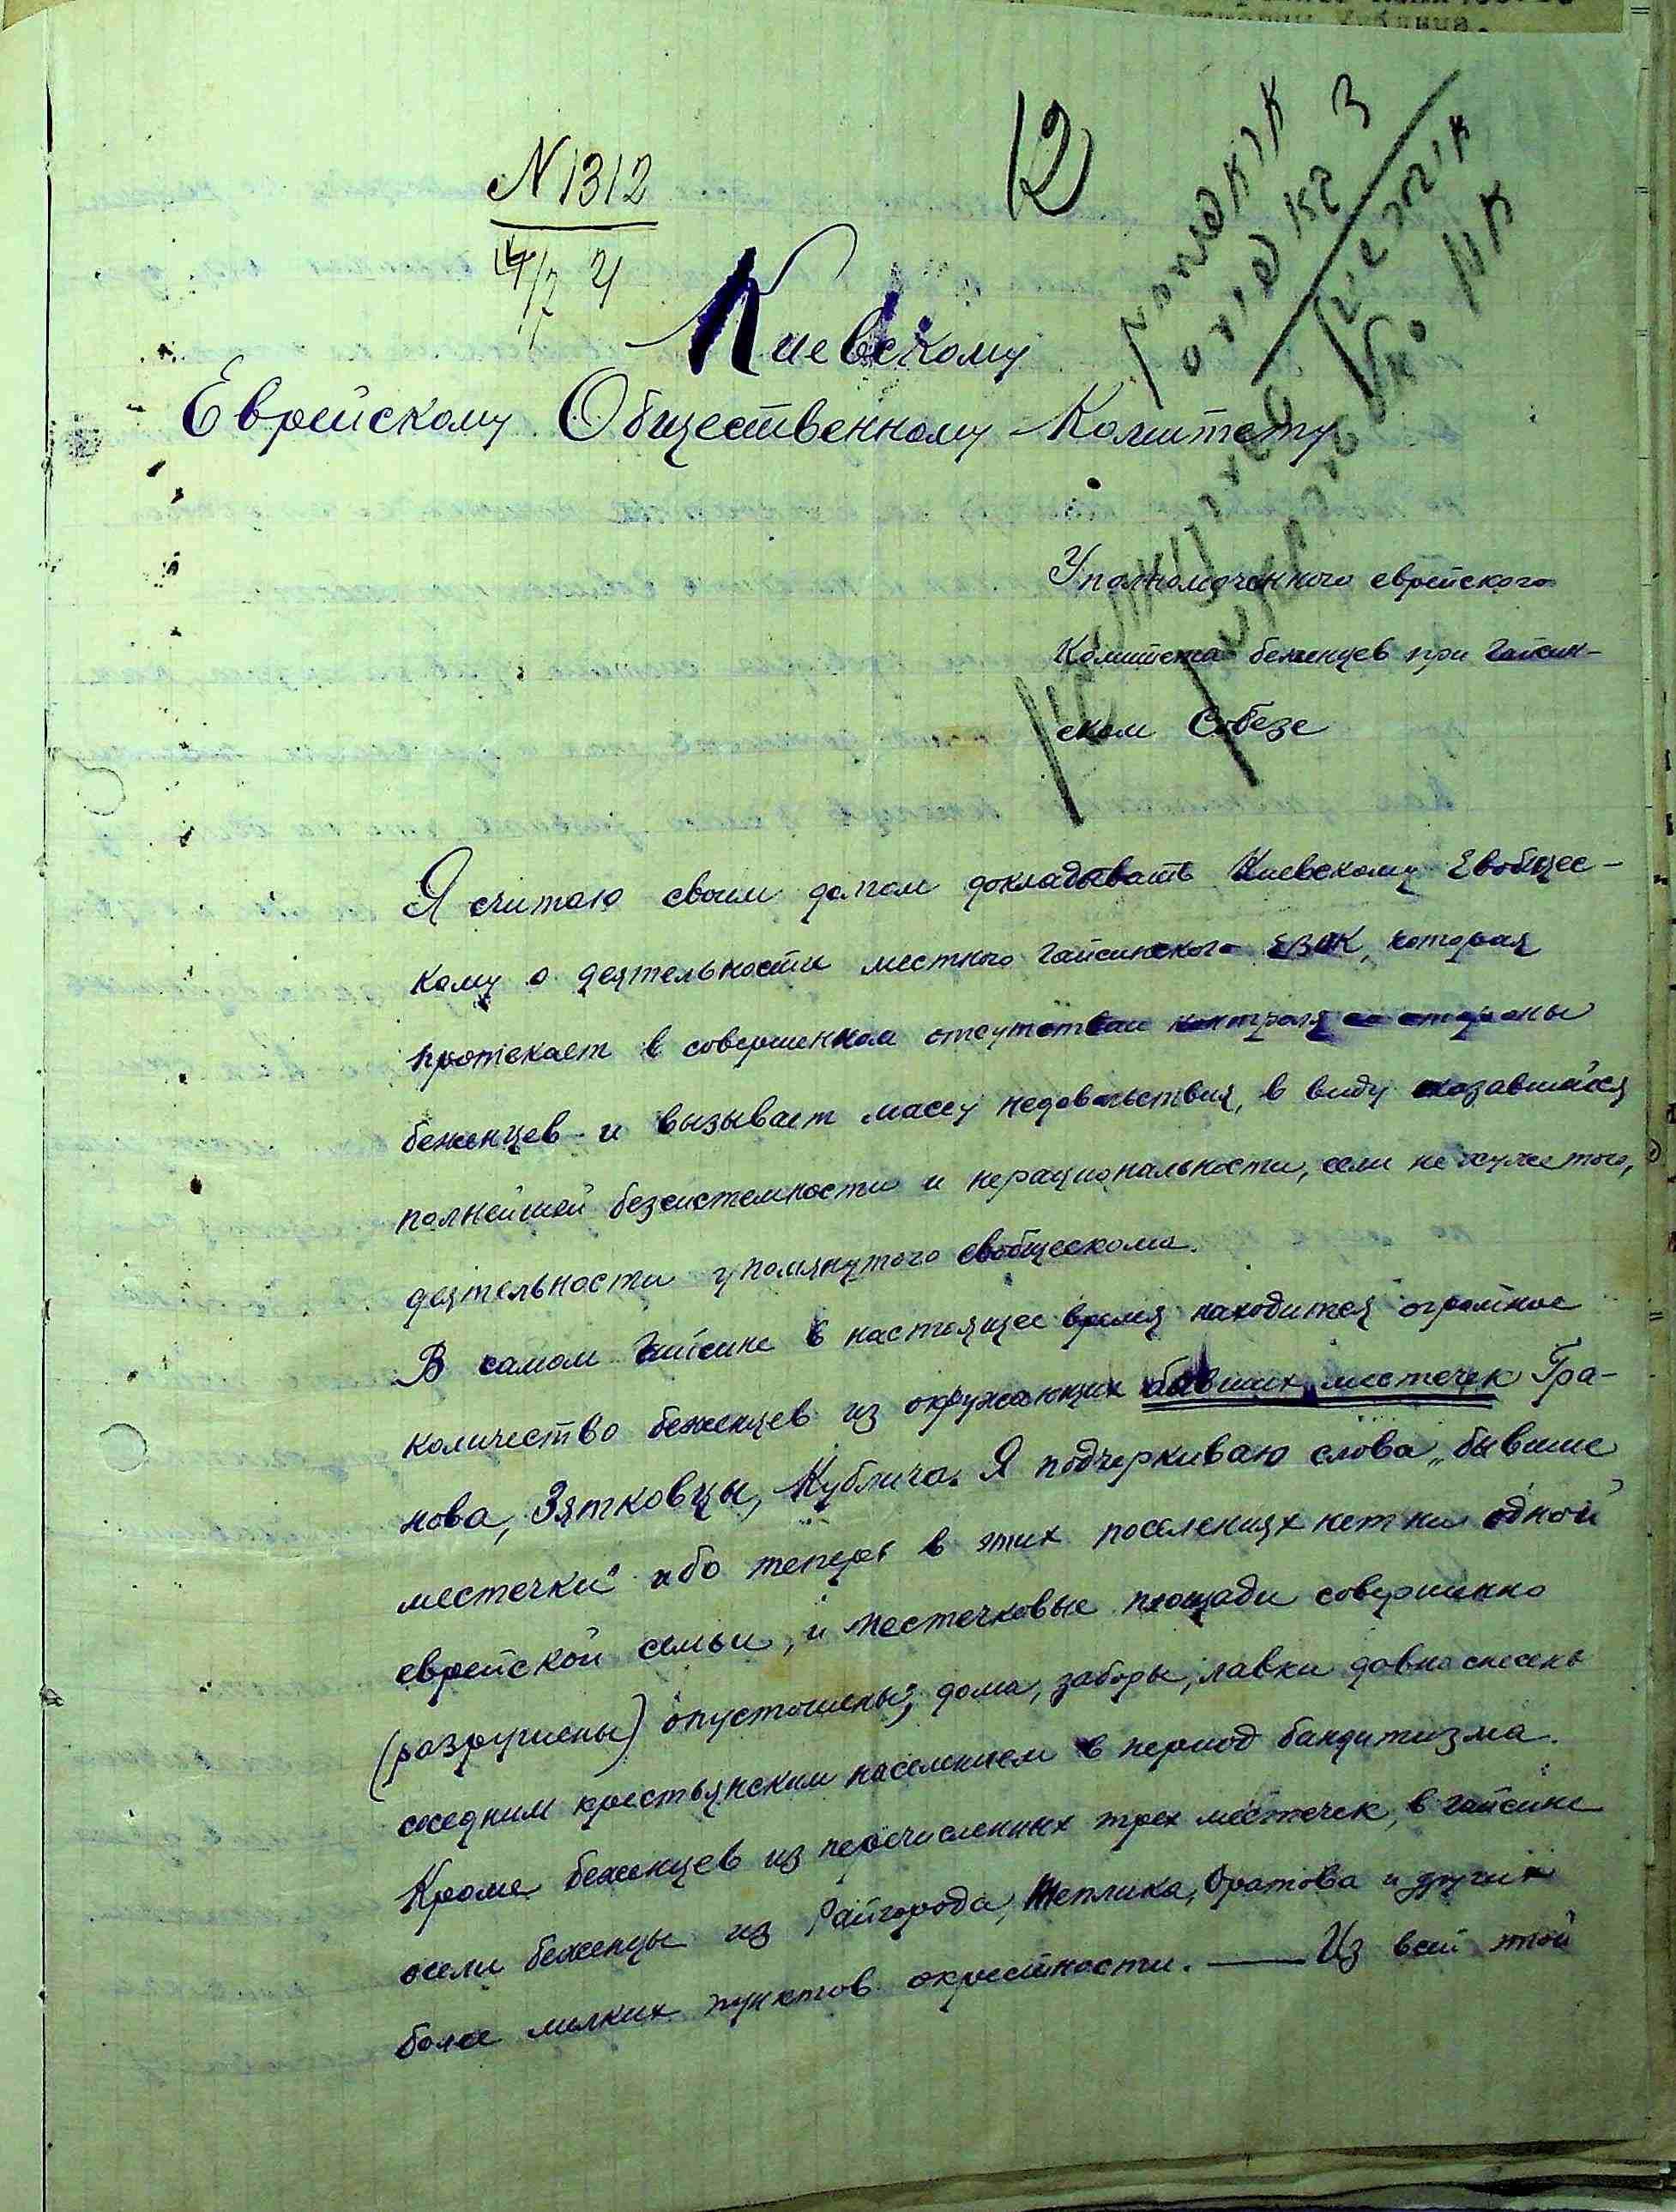 N 1312
12
4/7 21
Киевскому
Еврейскому Общественному Комитету
Уполномоченного еврейского
Комитета беженцев при Гайсин-
ском Собезе
Я считаю своим долгом докладывать Киевскому Евобщес-
кому о деятельности местного Гайсинского ЕВОК, которая
протекает в совершенном отсутствии контроля со стороны
беженцев и вызывает массу недовольствия, в виду оказавшейся
полнейшей безсистемности и нерациональности, если не хуже того,
деятельности упомянутого евобщескома.
В самом Гайсине в настоящее время находится огромное
количество беженцев из окружающих бывших местечек Гра-
нова, Зятковцы, Кублича. Я подчеркиваю слова „бывшие
местечки" ибо теперь в этих поселениях нет ни одной
еврейской семьи, и местечковые площади совершенно
(разрушены) опустошены; дома, заборы, лавки давно снесены
соседним крестьянским населением в период бандитизма.
Кроме беженцев из перечисленных трех местечек, в Гайсине
осели беженцы из Райгорода, Теплика, Оратова и других
более мелких пунктов окрестности. — Из всей этой